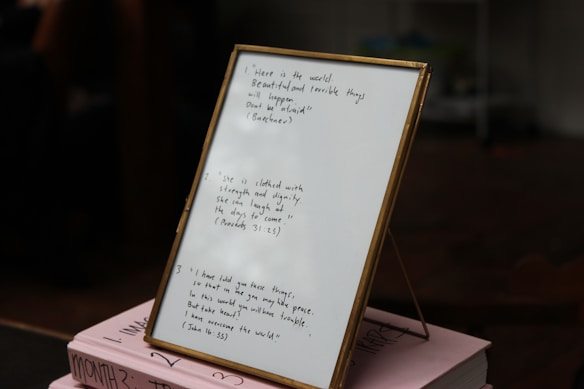 1. "Here is the world.
Beautiful and terrible things
will happen.
Dont be afraid"
(Buechner)
2. "She is clothed with
strength and dignity.
She can laugh at
the days to come."
(Proverbs 31:25)
3 "I have told you these things,
so that in me you may have peace.
In this world you will have trouble.
But take heart!
I have overcome the world"
(John 16:33)
1.
2
3
MONTH 3: